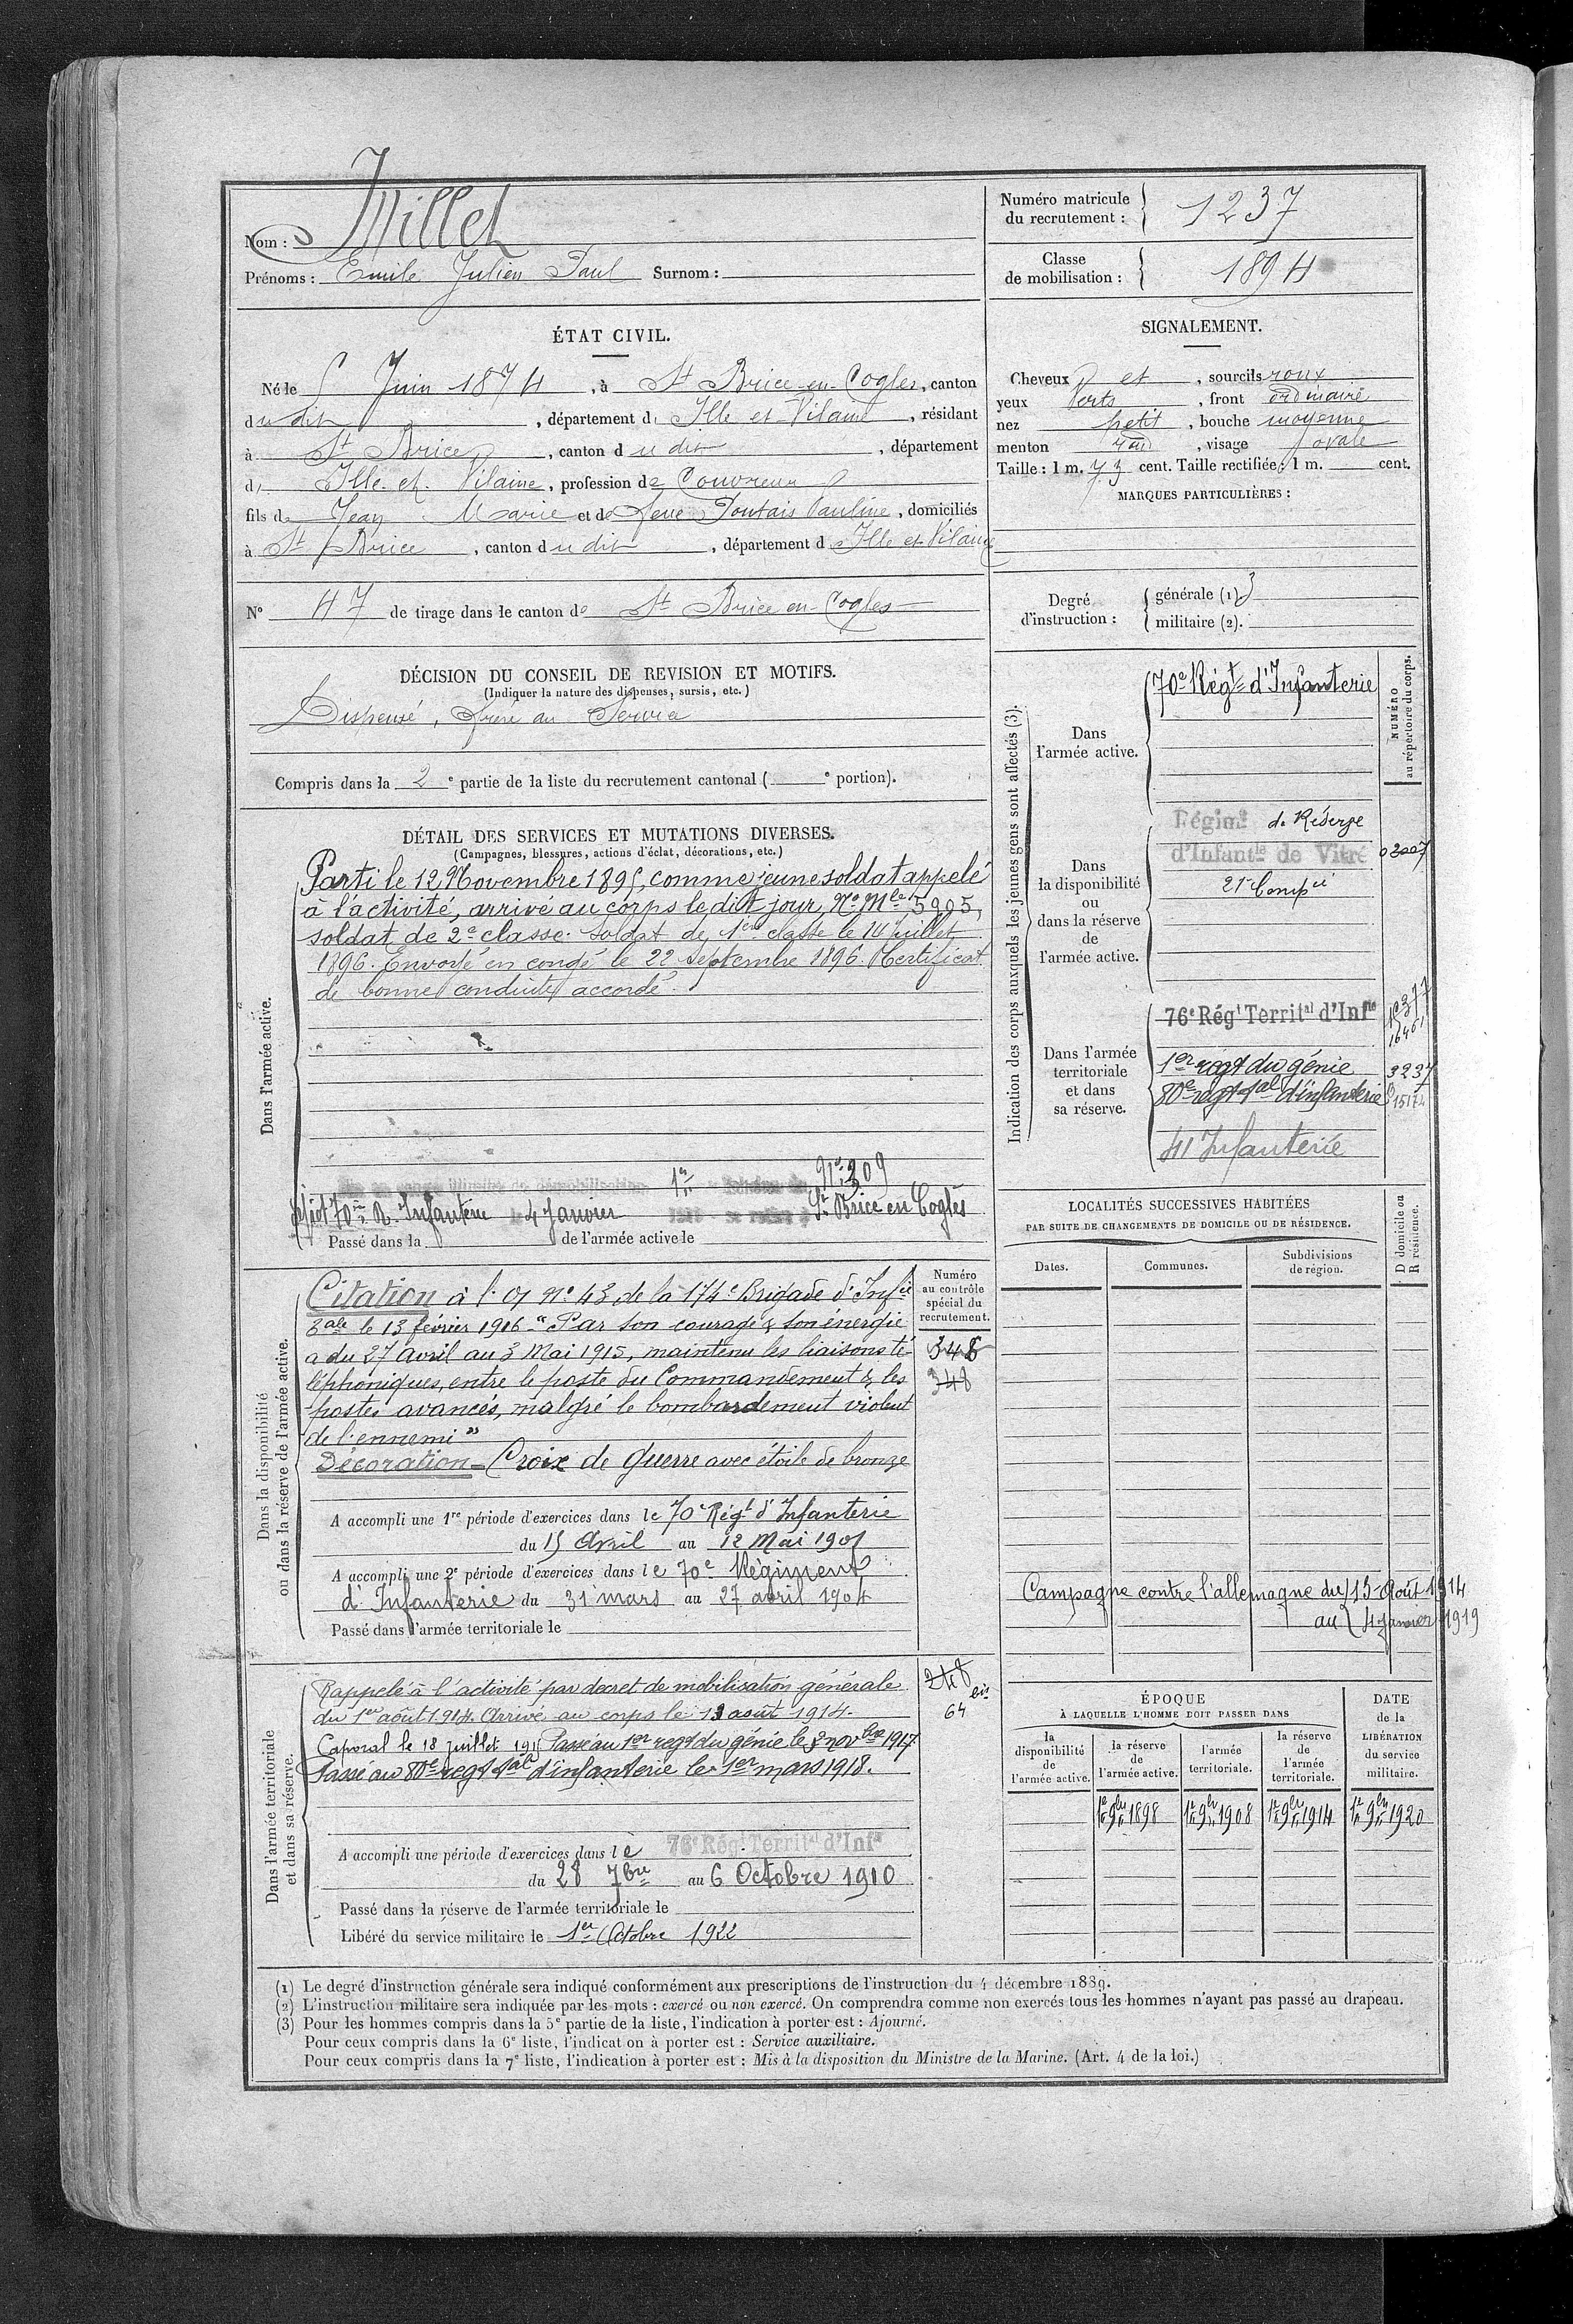 Nom : Millet
Prénoms : Emile Julien Paul Surnom :
Numéro matricule
du recrutement : 1237
Classe
de mobilisation : 1894
ÉTAT CIVIL.
Né le 5 Juin 1874, à St Brice-en-Cogles, canton
du dit, département d Ille et Vilaine, résidant
à St Brice, canton du dit, département
d Ille et Vilaine, profession de Couvreur
fils de Jean Marie et de feue Pauline, domiciliés
à St Brice, canton du dit, département d Ille et Vilaine
N° 47 de tirage dans le canton de St Brice en Cogles
SIGNALEMENT.
Cheveux et, sourcils roux
yeux Verts, front ordinaire
nez petit, bouche moyenne
menton rond, visage ovale
Taille : 1 m. 73 cent. Taille rectifiée : 1 m. cent.
MARQUES PARTICULIÈRES :
Degré
d'instruction :
générale (1) 3
militaire (2).
DÉCISION DU CONSEIL DE REVISION ET MOTIFS.
(Indiquer la nature des dispenses, sursis, etc.)
Dispensé, frère au Service
Compris dans la 2e partie de la liste du recrutement cantonal ( e portion).
DÉTAIL DES SERVICES ET MUTATIONS DIVERSES.
(Campagnes, blessures, actions d'éclat, décorations, etc.)
Dans l'armée active.
Parti le 12 Novembre 1895, comme jeune soldat appelé
à l'activité, arrivé au corps le dit jour, No Mle 5905,
soldat de 2e classe. Soldat de 1ere classe le 14 juillet
1896. Envoyé en congé le 22 septembre 1896. Certificat
de bonne conduite accordé.
1er No 309
70me R. Infanterie le 4 Janvier 1919 se retire à St Brice en Cogles
Passé dans la de l'armée active le
Indication des corps auxquels les jeunes gens sont affectés (3).
NUMÉRO
au répertoire du corps.
Dans
l'armée active.
70e Régt d'Infanterie
Dans
la disponibilité
ou
dans la réserve
de
l'armée active.
Régimt de Réserve
d'Infantie de Vitré
Dans l'armée
territoriale
et dans
sa réserve.
76e Régt Territal d'Infie
1er regt du génie 3237
80e regt tal d'infanterie
41 Infanterie
Dans la disponibilité
ou dans la réserve de l'armée active.
Numéro
au contrôle
spécial du
recrutement.
348
348
Citation à l'O n° 43 de la 174e Brigade d'Infie
tale le 13 février 1916 "Par son courage & son énergie
a du 27 Avril au 3 Mai 1915, maintenu les liaisons té-
léphoniques, entre le poste du Commandement & les
postes avancés, malgré le bombardement violent
de l'ennemi"
Décoration - Croix de Guerre avec étoile de bronze
A accompli une 1re période d'exercices dans le 70e Régt d'Infanterie
du 15 Avril au 12 Mai 1901
A accompli une 2e période d'exercices dans le 70e Régiment
d'Infanterie du 31 mars au 27 avril 1904
Passé dans l'armée territoriale le
LOCALITÉS SUCCESSIVES HABITÉES
PAR SUITE DE CHANGEMENTS DE DOMICILE OU DE RÉSIDENCE.
Dates.
Communes.
Subdivisions
de région.
D domicile ou
R résidence.
Campagne contre l'allemagne du 13 Août 1914
au 4 Janvier 1919
Dans l'armée territoriale
et dans sa réserve.
248
64 bis
Rappelé à l'activité par decret de mobilisation générale
du 1er août 1914. Arrivé au corps le 13 août 1914.
Caporal le 18 juillet Passé au 1er regt du génie le 3 novbre 1917
Passé au 80e regt tal d'infanterie le 1er mars 1918.
A accompli une période d'exercices dans le 76e Régt Territal d'Infie
du 28 7bre au 6 Octobre 1910
Passé dans la réserve de l'armée territoriale le
Libéré du service militaire le 1er Octobre 1922
ÉPOQUE
À LAQUELLE L'HOMME DOIT PASSER DANS
la
disponibilité
de
l'armée active.
la réserve
de
l'armée active.
l'armée
territoriale.
la réserve
de
l'armée
territoriale.
DATE
de la
LIBÉRATION
du service
militaire.
1er 9bre 1898
1er 9bre 1908
1er 9bre 1914
1er 9bre 1920
(1) Le degré d'instruction générale sera indiqué conformément aux prescriptions de l'instruction du 4 décembre 1889.
(2) L'instruction militaire sera indiquée par les mots : exercé ou non exercé. On comprendra comme non exercés tous les hommes n'ayant pas passé au drapeau.
(3) Pour les hommes compris dans la 5e partie de la liste, l'indication à porter est : Ajourné.
Pour ceux compris dans la 6e liste, l'indication à porter est : Service auxiliaire.
Pour ceux compris dans la 7e liste, l'indication à porter est : Mis à la disposition du Ministre de la Marine. (Art. 4 de la loi.)